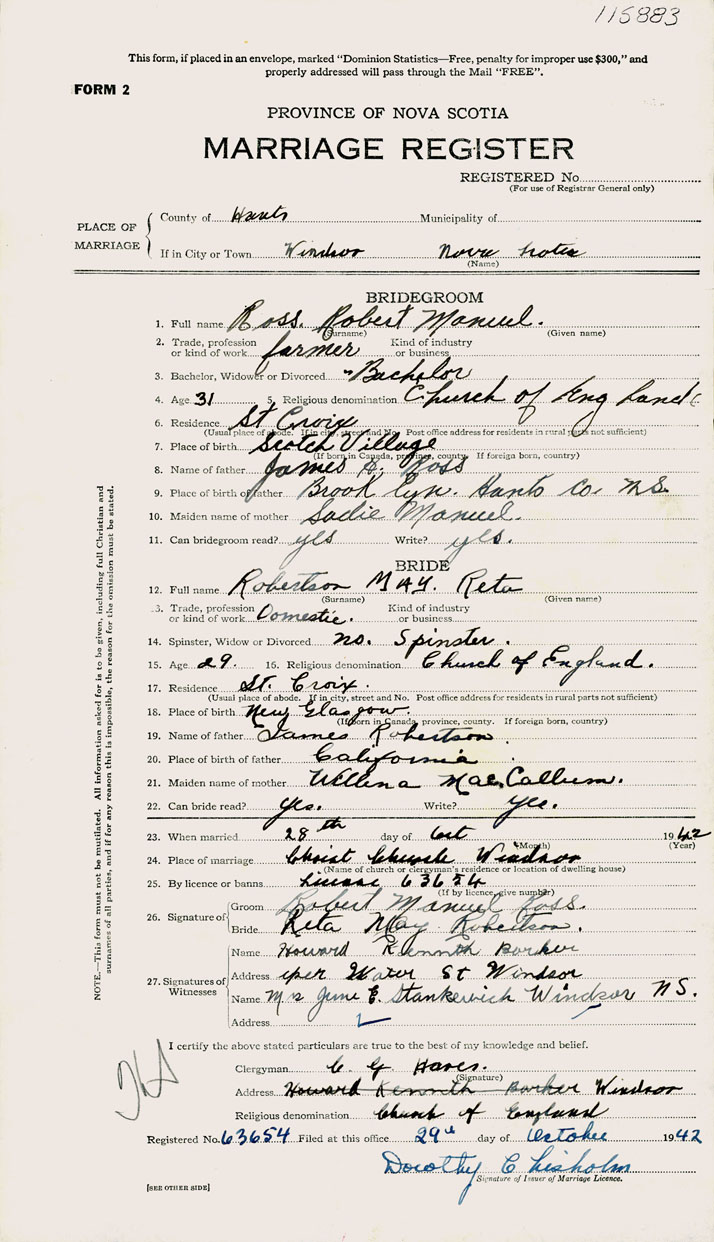 115883
This form, if placed in an envelope, marked "Dominion Statistics—Free, penalty for improper use $300," and
properly addressed will pass through the Mail "FREE".
FORM 2
PROVINCE OF NOVA SCOTIA
MARRIAGE REGISTER
REGISTERED No.
(For use of Registrar General only)
PLACE OF MARRIAGE
County of Hants Municipality of
If in City or Town Windsor Nova Scotia
(Name)
BRIDEGROOM
1. Full name Ross. Robert Manuel.
(Surname) (Given name)
2. Trade, profession or kind of work farmer Kind of industry or business
3. Bachelor, Widower or Divorced Bachelor
4. Age 31 5. Religious denomination Church of England
6. Residence St Croix
(Usual place of abode. If in city, street and No. Post office address for residents in rural parts not sufficient)
7. Place of birth Scotch Village
(If born in Canada, province, county. If foreign born, country)
8. Name of father James A. Ross
9. Place of birth of father Brook lyn. Hants Co. N.S.
10. Maiden name of mother Sadie Manuel.
11. Can bridegroom read? yes Write? yes.
BRIDE
12. Full name Robertson MAY. Reta
(Surname) (Given name)
13. Trade, profession or kind of work Domestic. Kind of industry or business
14. Spinster, Widow or Divorced no. Spinster.
15. Age 29. 16. Religious denomination Church of England.
17. Residence St. Croix.
(Usual place of abode. If in city, street and No. Post office address for residents in rural parts not sufficient)
18. Place of birth New Glasgow.
(If born in Canada, province, county. If foreign born, country)
19. Name of father James Robertson
20. Place of birth of father California
21. Maiden name of mother Wellena MacCallum.
22. Can bride read? yes. Write? yes.
23. When married 28th day of Oct 1942
(Month) (Year)
24. Place of marriage Christ Church Windsor
(Name of church or clergyman's residence or location of dwelling house)
25. By licence or banns License 63654
(If by licence, give number)
26. Signature of
Groom Robert Manuel Ross.
Bride Reta May Robertson.
27. Signatures of Witnesses
Name Howard Kennth Barker
Address uper Water St Windsor
Name Mrs June E. Stankewich Windsor N.S.
Address
I certify the above stated particulars are true to the best of my knowledge and belief.
Clergyman C. G. Hares.
(Signature)
Address Howard Kennth Barker Windsor
Religious denomination Church of England
Registered No. 63654 Filed at this office 29th day of October 1942
Dorothy Chisholm
Signature of Issuer of Marriage Licence.
[SEE OTHER SIDE]
NOTE.—This form must not be mutilated. All information asked for is to be given, including full Christian and
surnames of all parties, and if for any reason this is impossible, the reason for the omission must be stated.